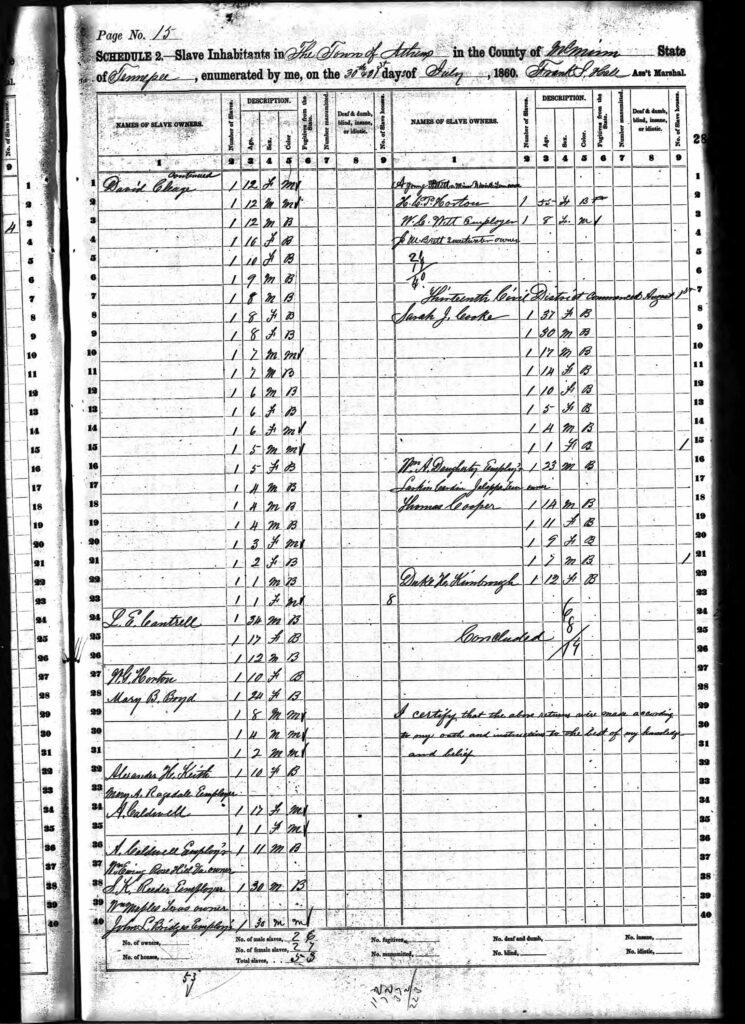 Page No. 15
SCHEDULE 2.—Slave Inhabitants in The Town of Athens in the County of McMinn State
of Tennessee, enumerated by me, on the 30th & 31st day of July, 1860. Frank S. Hale Ass't Marshal.
NAMES OF SLAVE OWNERS. Number of Slaves. DESCRIPTION. Age. Sex. Color. Fugitives from the State. Number manumitted. Deaf & dumb, blind, insane, or idiotic. No. of Slave houses.
NAMES OF SLAVE OWNERS. Number of Slaves. DESCRIPTION. Age. Sex. Color. Fugitives from the State. Number manumitted. Deaf & dumb, blind, insane, or idiotic. No. of Slave houses.
1 2 3 4 5 6 7 8 9 1 2 3 4 5 6 7 8 9
28
continued
1 David Cleage 1 12 F M
2 1 12 M M
3 1 12 M B
4 1 16 F B
5 1 10 F B
6 1 9 M B
7 1 8 M B
8 1 8 F B
9 1 8 F B
10 1 7 M M
11 1 7 M B
12 1 6 M B
13 1 6 F B
14 1 6 F M
15 1 5 M M
16 1 5 F B
17 1 4 M B
18 1 4 M B
19 1 4 M B
20 1 3 F M
21 1 2 F B
22 1 1 M B
23 1 1 F M 8
24 L. E. Cantrell 1 34 M B
25 1 17 F B
26 1 12 M B
27 W. G. Horton 1 10 F B
28 Mary B. Boyd 1 24 F B
29 1 8 M M
30 1 4 M M
31 1 2 M M
32 Alexander H. Keith 1 10 F B
33 Mary A. Ragsdale Employer
34 A. Caldwell 1 17 F M
35 1 1 F M
36 A. Caldwell Employ'r 1 11 M B
37 Wm Ewing Rose Hill Va. owner
38 S. K. Reeder Employer 1 30 M B
39 Wm Maples Texas owner
40 John L. Bridges Employ'r 1 30 M M
2 H. C. P. Horton 1 55 F B
3 W. C. Witt Employer 1 8 F M
4 J. M. Brett Sweetwater owner
Thirteenth Civil District Commenced August 1st
8 Sarah J. Cooke 1 37 F B
9 1 30 M B
10 1 17 M B
11 1 14 F B
12 1 10 F B
13 1 5 F B
14 1 4 M B
15 1 1 F B 1
16 Wm A. Daugherty Employ'r 1 23 M B
17 Larkin Cardin Jalappa Tenn owner
18 Thomas Cooper 1 14 M B
19 1 11 F B
20 1 9 F B
21 1 7 M B 1
22 Duke H. Kimbrough 1 12 F B
6
8
14
Concluded
I certify that the above returns were made according
to my oath and instructions to the best of my knowledge
and belief
No. of owners, No. of male slaves, 26 No. fugitives, No. deaf and dumb, No. insane,
No. of houses, No. of female slaves, 27 No. manumitted, No. blind, No. idiotic,
Total slaves, 53
53